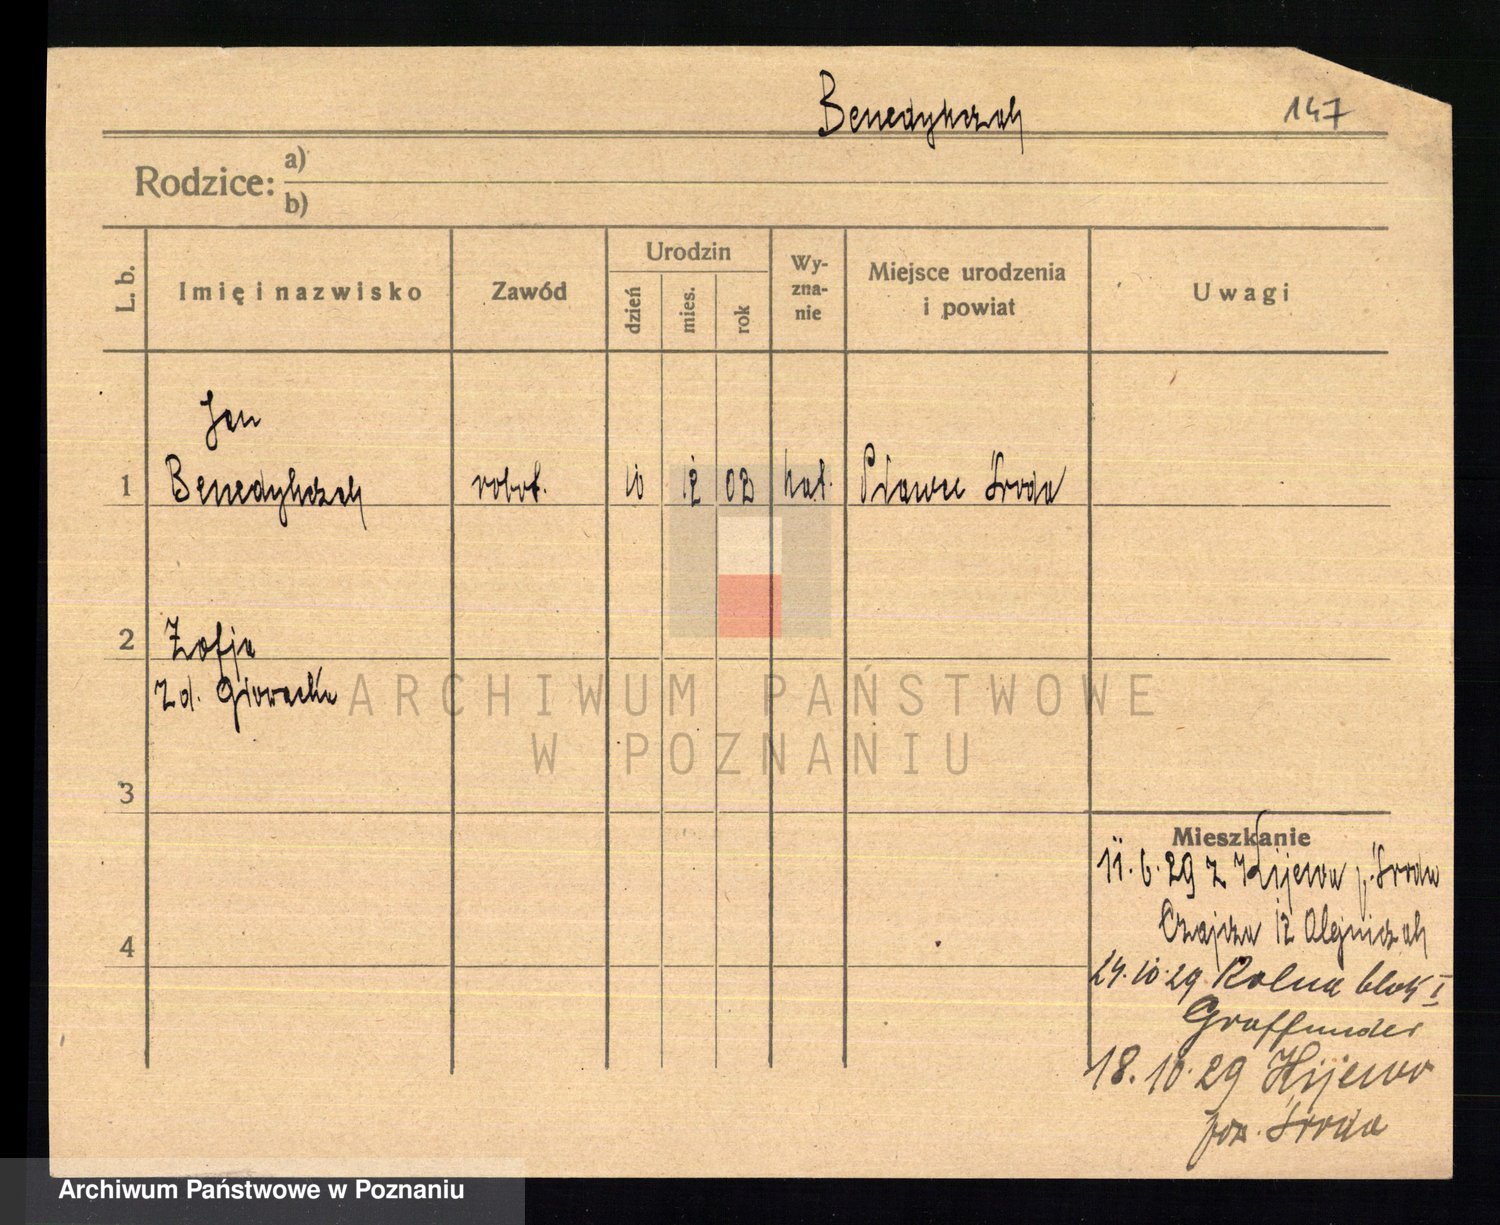 Benedykczak 147
Rodzice: a)
b)
L. b. Imię i nazwisko Zawód Urodzin dzień mies. rok Wy-zna-nie Miejsce urodzenia i powiat Uwagi
Jan
1 Benedykczak robot. 10 12 02 kat. Pławce Środa
2 Zofja
zd. Głowacka
ARCHIWUM PAŃSTWOWE
W POZNANIU
3
Mieszkanie
11. 6. 29 z Kijewa p. Środa
Czajcza 12 Olejniczak
4
24. 10. 29 Rolna blok I
Graffunder
18. 10. 29 Kijewo
pow. Środa
Archiwum Państwowe w Poznaniu